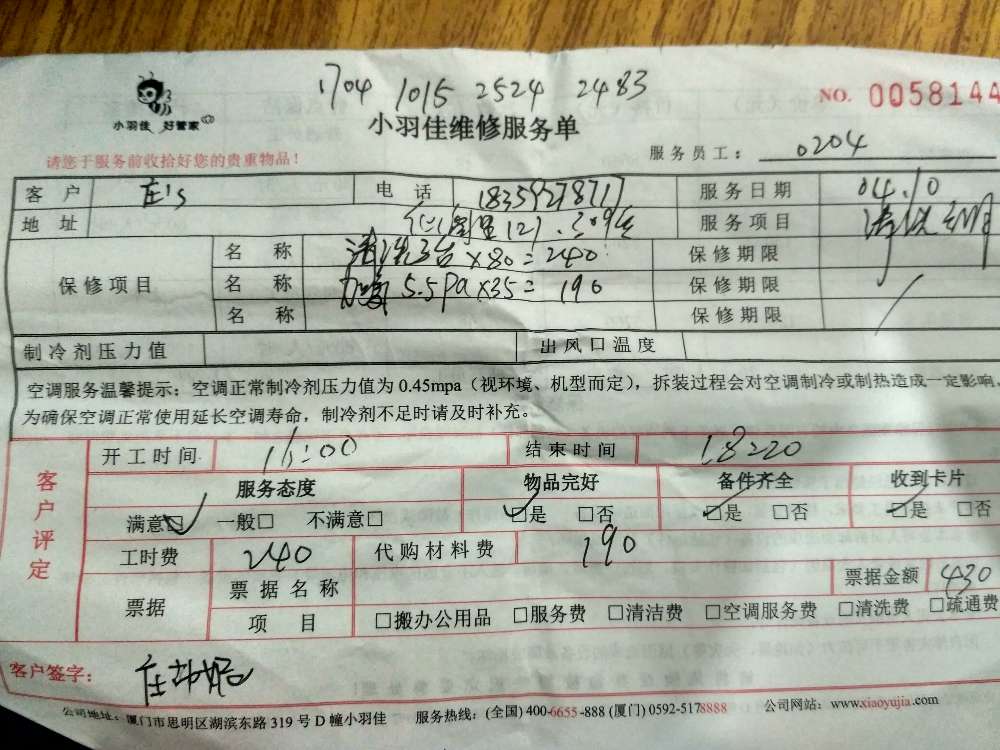 1704 1015 2524 2483
小羽佳 好管家
小羽佳维修服务单
NO. 0058144
请您于服务前收拾好您的贵重物品！
服务员工： 0204
客户 庄's 电话 18359278717 服务日期 04.10
地址 309室 服务项目 清洗
保修项目 名称 清洗3台×80=240 保修期限
名称 加 5.5Pa×35=190 保修期限
名称 保修期限
制冷剂压力值 出风口温度
空调服务温馨提示：空调正常制冷剂压力值为0.45mpa（视环境、机型而定），拆装过程会对空调制冷或制热造成一定影响，
为确保空调正常使用延长空调寿命，制冷剂不足时请及时补充。
客户评定
开工时间 :00 结束时间 18:20
服务态度 物品完好 备件齐全 收到卡片
满意☑ 一般□ 不满意□ ☑是 □否 ☑是 □否 ☑是 □否
工时费 240 代购材料费 190
票据 票据名称 票据金额 430
项目 □搬办公用品 □服务费 □清洁费 □空调服务费 □清洗费 □疏通费
客户签字：
公司地址：厦门市思明区湖滨东路319号D幢小羽佳 服务热线：(全国) 400-6655-888 (厦门) 0592-5178888 公司网站：www.xiaoyujia.com